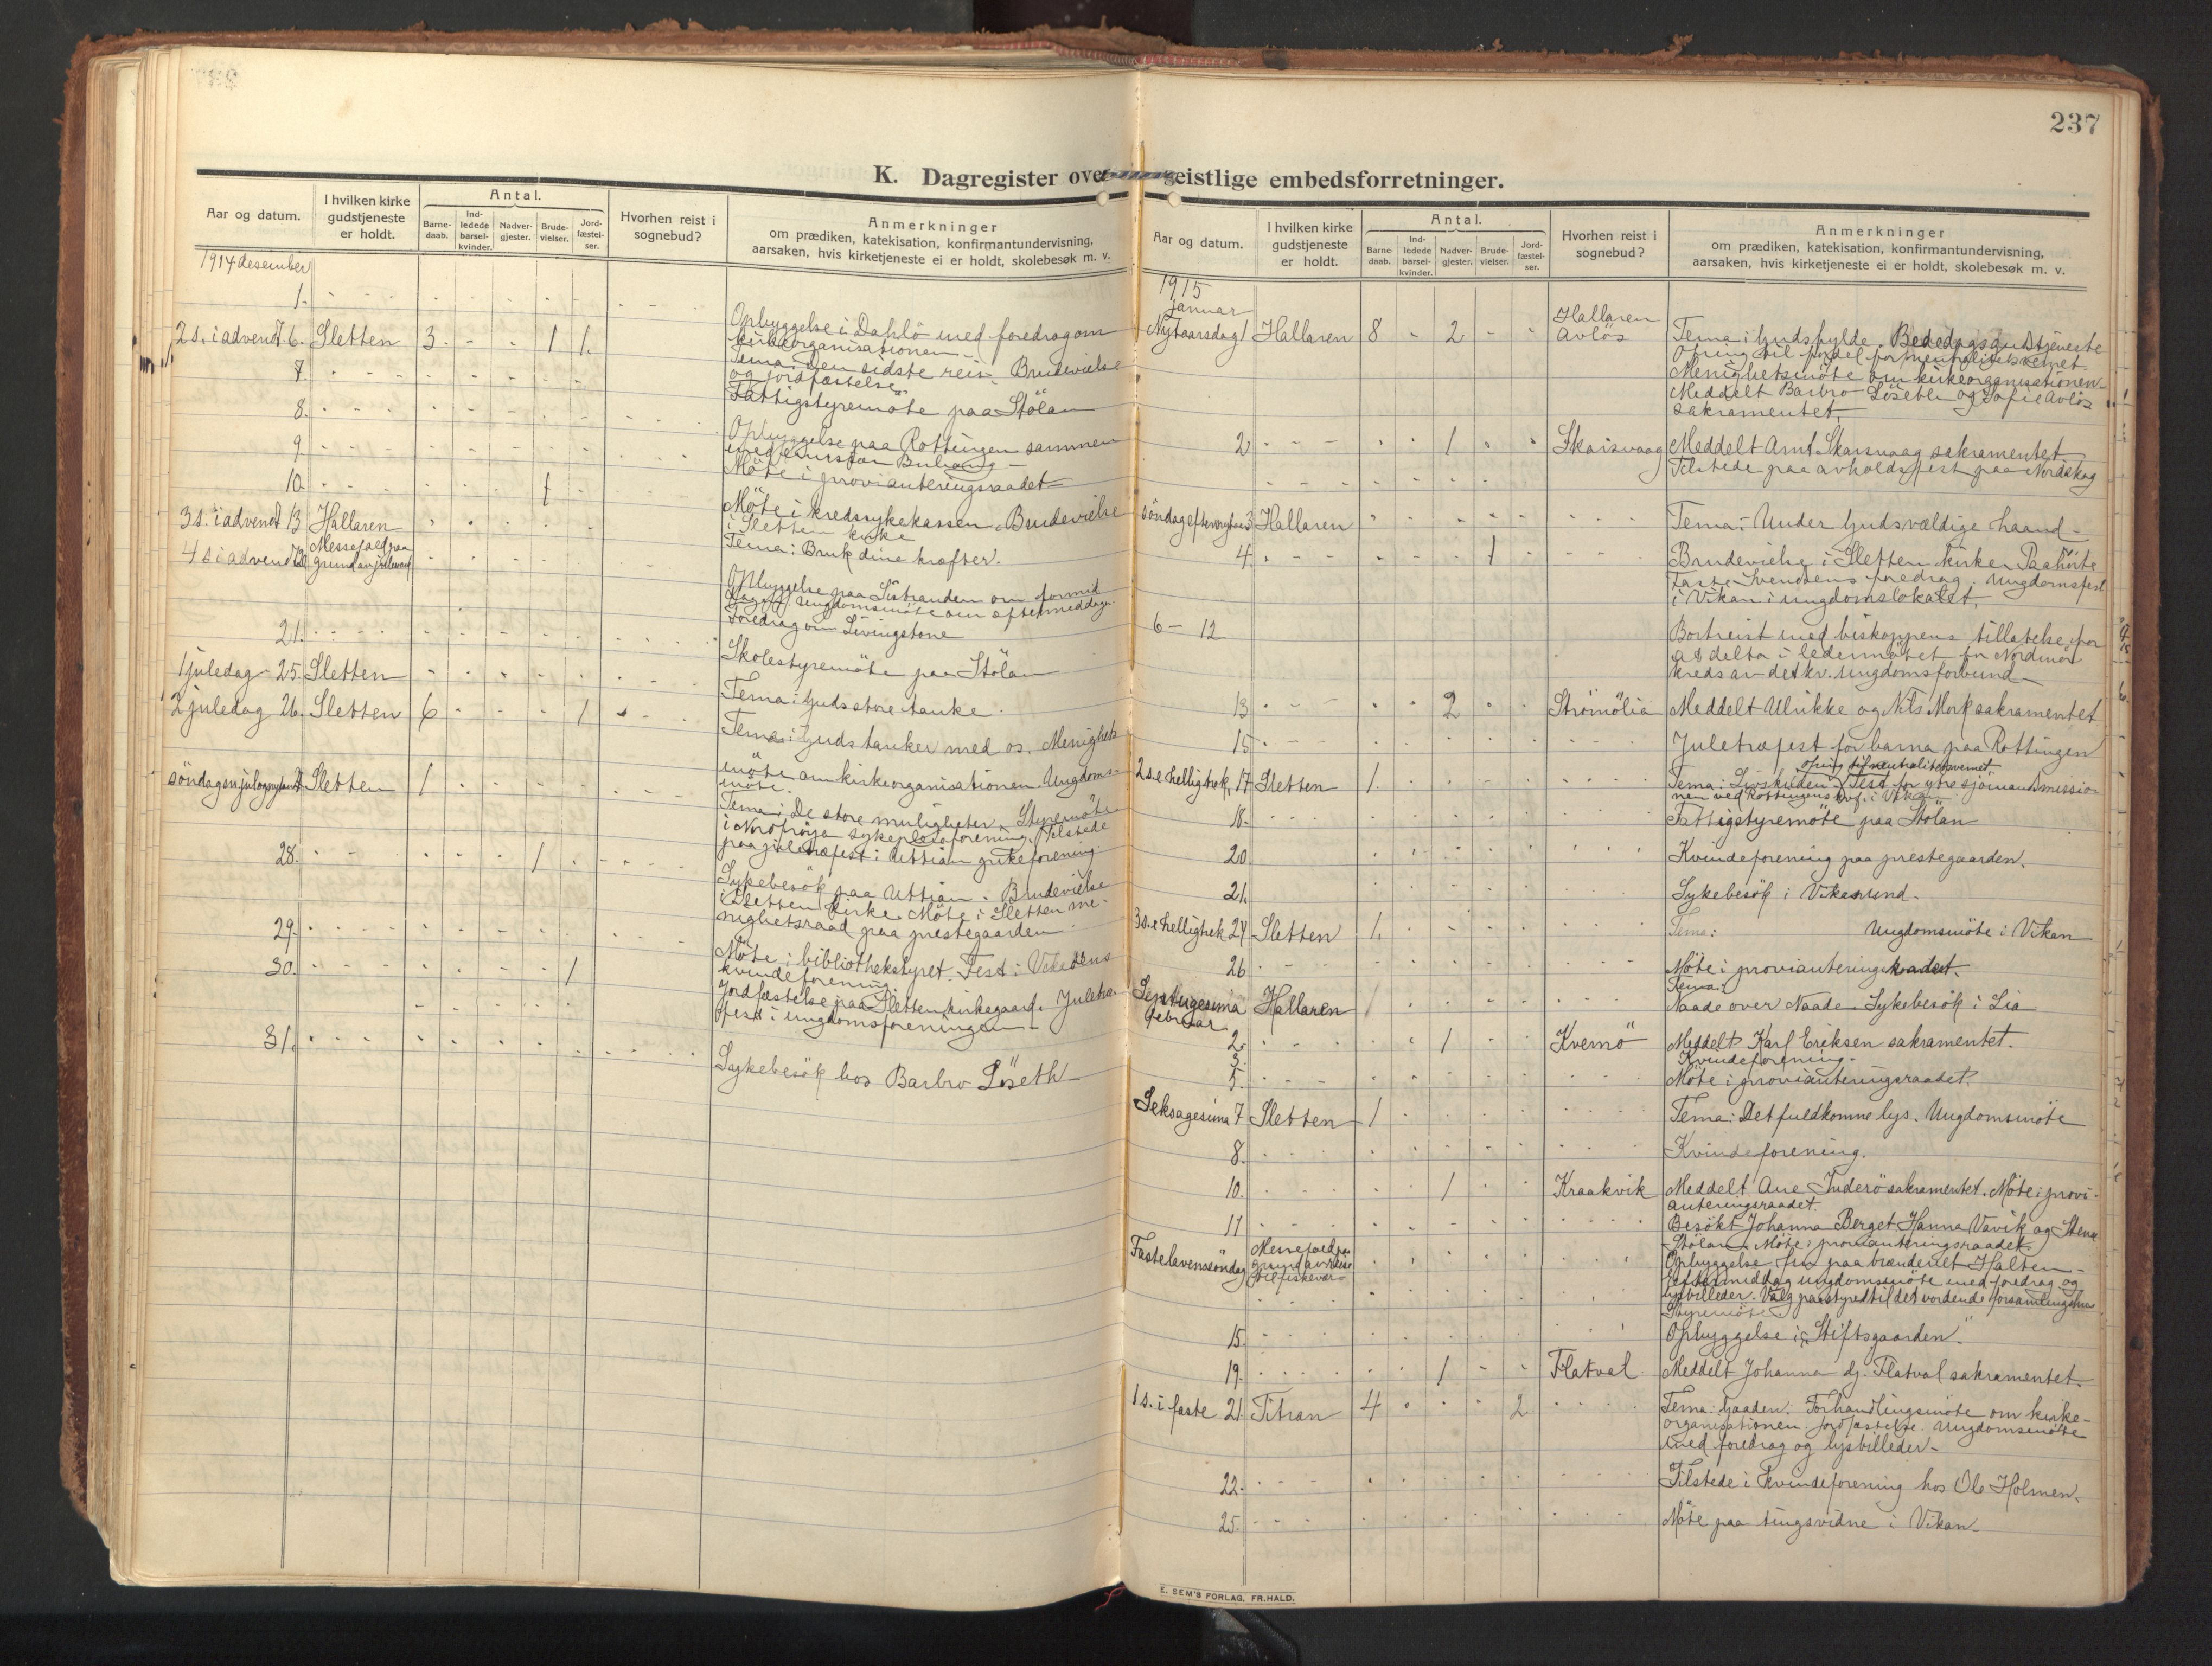 237
K. Dagregister over geistlige embedsforretninger.
Aar og datum.
I hvilken kirke gudstjeneste er holdt.
Antal.
Barne-daab.
Ind-ledede barsel-kvinder.
Nadver-gjester.
Brude-vielser.
Jord-fæstel-ser.
Hvorhen reist i sognebud?
Anmerkninger
om prædiken, katekisation, konfirmantundervisning,
aarsaken, hvis kirketjeneste ei er holdt, skolebesøk m. v.
1914 desember
1. Opbyggelse i Dahlö med foredrag om
kirkeorganisationen
2 s. i advent 6. Sletten 3 1 1.
Tema: Den sidste reis. Brudevielse
og jordfæstelse
7. Fattigstyremöte paa Stölan
8. Opbyggelse paa Rottingen sammen
med
9. Möte i provianteringsraadet
10. 1 Möte i kredssykekassen. Brudevielse
i Sletten kirke
3 s. i advent 13 Hallaren Tema: Bruk dine kræfter.
4 s i advent 20 Messefald paa
grund av
Opbyggelse paa Sistranden om formid
dagen. Ungdomsmöte om eftermiddagen.
Foredrag om Livingstone
21. Skolestyremöte paa Stölan
1 juledag 25. Sletten Tema: Guds store tanke.
2 juledag 26. Sletten 6 1 Tema: Guds tanker med os. Menighets
möte om kirkeorganisationen. Ungdoms-
möte.
Sletten 1 Tema: De store muligheter. Styremöte
i Nordfröya sykepleieforening. Tilstede
paa juletræfest i Uttian gutteforening
28. 1 Sykebesök paa Uttian. Brudevielse
i Sletten kirke. Möte i Sletten me-
nighetsraad paa prestegaarden
29. Möte i bibliothekstyret. Fest i
kvindeforening.
30. 1 Jordfæstelse paa Sletten kirkegaard. Juletræ-
fest i ungdomsforeningen
31. Sykebesök hos Barbro Löseth
Aar og datum.
I hvilken kirke gudstjeneste er holdt.
Antal.
Barne-daab.
Ind-ledede barsel-kvinder.
Nadver-gjester.
Brude-vielser.
Jord-fæstel-ser.
Hvorhen reist i sognebud?
Anmerkninger
om prædiken, katekisation, konfirmantundervisning,
aarsaken, hvis kirketjeneste ei er holdt, skolebesøk m. v.
1915
Januar
Nytaarsdag 1 Hallaren 8 2 Hallaren
Avlös
Tema: Guds fylde. Bededagsgudstjeneste
Ofring til fordel for neutralitetsvernet.
Menighetsmöte om kirkeorganisationen
Meddelt Barbro Löseth og Sofie Avlös
sakramentet.
2 1 Skarsvaag Meddelt Arnt Skarsvaag sakramentet
Tilstede paa avholdsfest paa Nordskag
söndag efter nytaar 3 Hallaren Tema: Under Guds vældige haand
4. 1 Brudevielse i Sletten kirke. Paahörte
Svendsens foredrag. Ungdomsfest
i Vikan i ungdomslokalet.
6 – 12 Bortreist med biskoppens tillatelse for
at delta i ledermötet for Nordmör
kreds av det kr. ungdomsforbund
13 2 Strömölia Meddelt Ulrikke og Nils Mork sakramentet
15 Juletræfest for barna paa Rottingen
ofring til neutralitetsvernet
2 s. e hellig trek. 17 Sletten 1. Tema: Livskilden. Fest for ytre sjömandsmissio
nen ved Rottingens kvf. i Vikan
18. Fattigstyremöte paa Stölan
20. Kvindeforening paa prestegaarden.
21. Sykebesök i Vikasund.
3 s. e hellig trek 24 Sletten 1. Tema: Ungdomsmöte i Vikan
26 Möte i provianteringsraadet.
Septugesima Hallaren 1 Tema:
Naade over Naade. Sykebesök i Lia
februar
2. 1 Kvernö Meddelt Karl Eriksen sakramentet.
3. Kvindeforening.
5. Möte i provianteringsraadet.
Seksagesima 7 Sletten 1 Tema: Det fuldkomne lys. Ungdomsmöte
8. Kvindeforening.
10. 1 Kraakvik Meddelt Ane Inderö sakramentet. Möte i provi-
anteringsraadet.
11 Besökt Johanna Berget Hanna Vavik og
Stölan. Möte i provianteringsraadet.
Fastelavenssöndag Messefald paa
grund av reise
til fiskevær
Opbyggelse paa Halten
Eftermiddag ungdomsmöte med foredrag og
lysbilleder. Valg paa styret til det vordende forsamlingshus
Styremöte
15. Opbyggelse i „Stiftsgaarden".
19. 1 Flatval Meddelt Johanna dj. Flatval sakramentet.
1 s. i faste 21. Titran 4 2 Tema: Gaaden. Forhandlingsmöte om kirke-
organisationen. Jordfæstelse. Ungdomsmöte
med foredrag og lysbilleder
22. Tilstede i kvindeforening hos Ole Holmen.
25. Möte paa tingsvidne i Vikan
E. SEM'S FORLAG, FR.HALD.